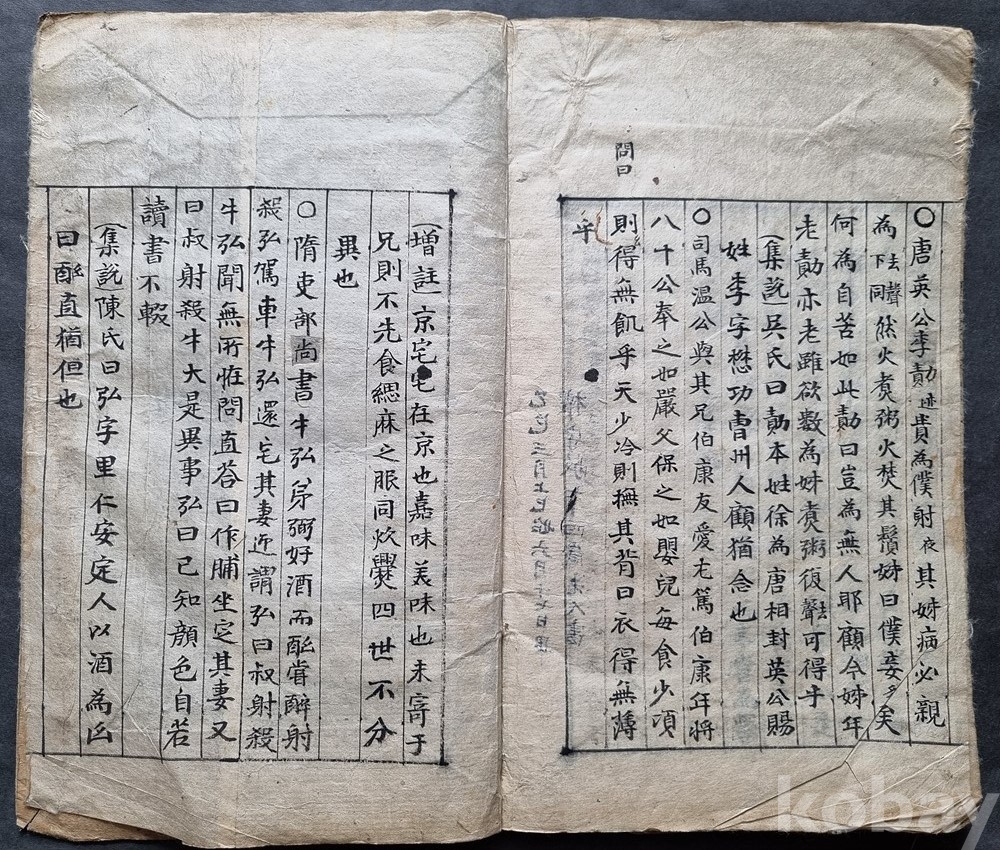 ○唐英公李勣迹貴為僕射夜其姊病必親
為去聲下同然火煮粥火焚其鬚姊曰僕妾多矣
何為自苦如此勣曰豈為無人耶顧今姊年
老勣亦老雖欲數為姊煮粥復去聲可得乎
集說吳氏曰勣本姓徐為唐相封英公賜
姓李字懋功曹州人顧猶念也
○司馬溫公與其兄伯康友愛尤篤伯康年將
八十公奉之如嚴父保之如嬰兒每食少頃
則得無飢乎天少冷則撫其背曰衣得無薄
乎
問曰
增註京宅宅在京也嘉味美味也未寄于
兄則不先食緦麻之服同炊爨四世不分
異也
○隋吏部尚書牛弘弟弼好酒而酗嘗醉射
殺弘駕車牛弘還宅其妻迎謂弘曰叔射殺
牛弘聞無所恠問直荅曰作脯坐定其妻又
曰叔射殺牛大是異事弘曰已知顏色自若
讀書不輟
集說陳氏曰弘字里仁安定人以酒為凶
曰酗直猶但也
kobay